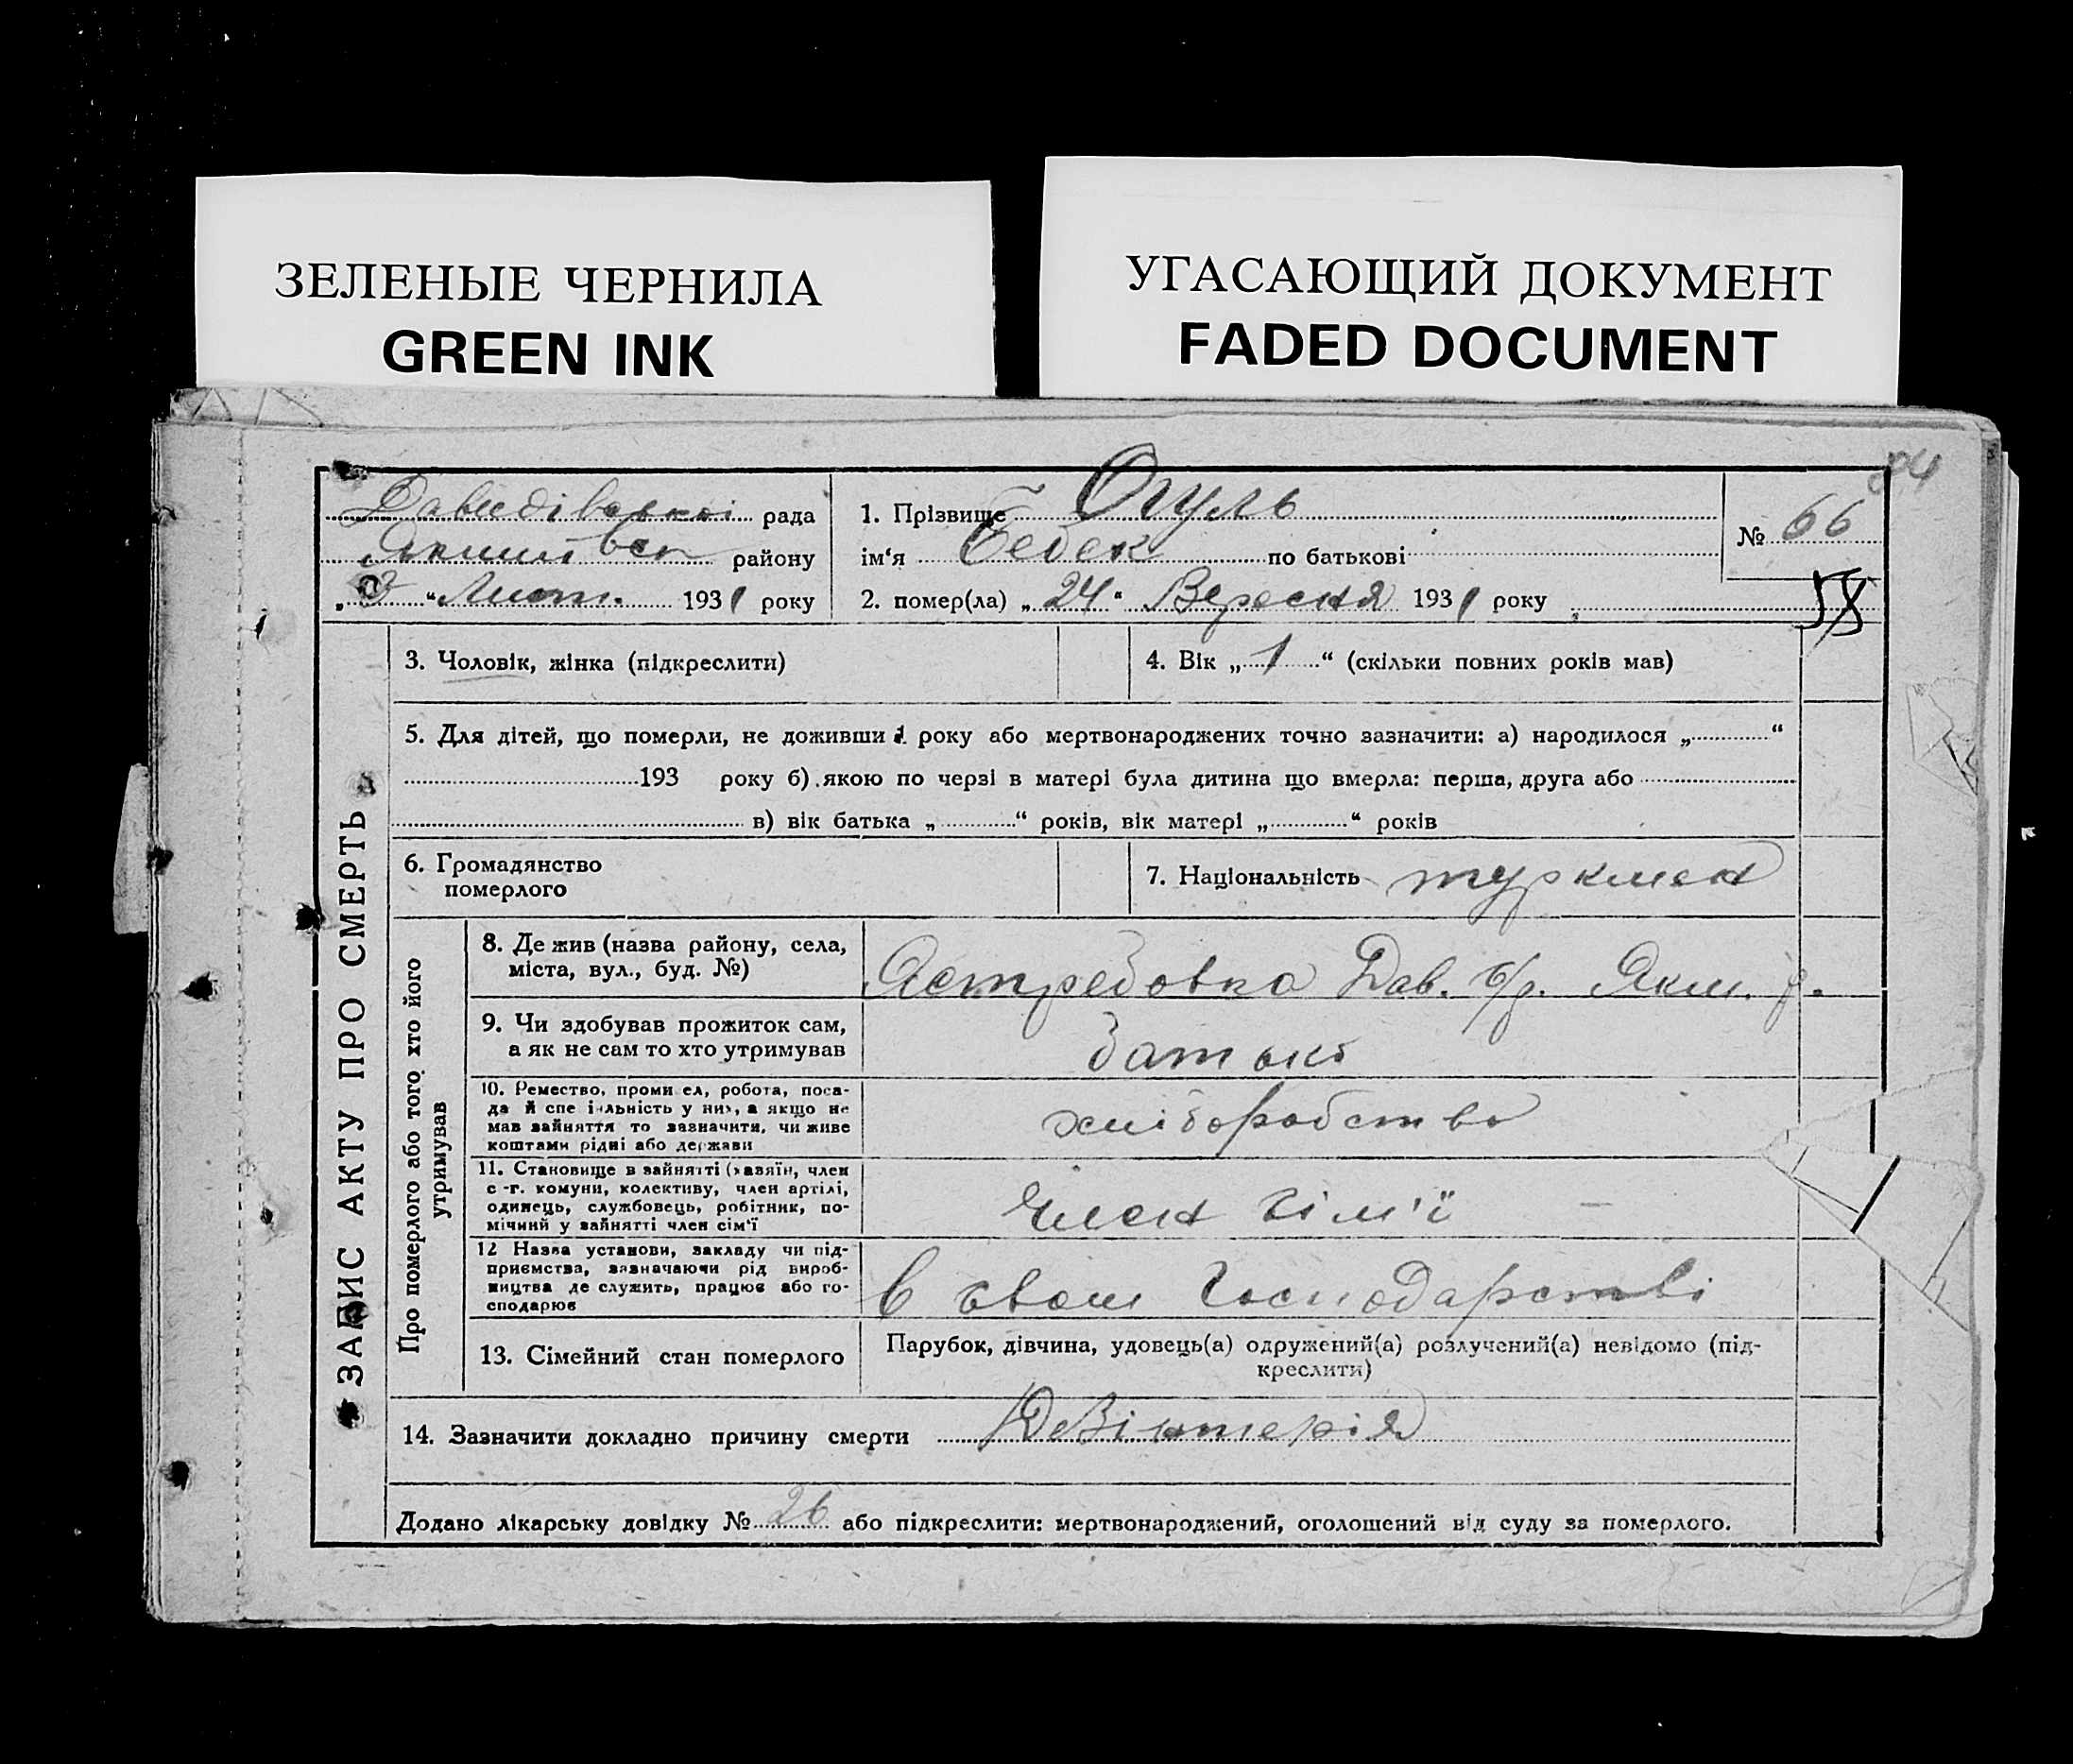 ЗЕЛЕНЫЕ ЧЕРНИЛА
GREEN INK
УГАСАЮЩИЙ ДОКУМЕНТ
FADED DOCUMENT
Давидівської рада
району
„3“ Лист. 1931 року
1. Прізвище Огуль
ім‘я Бебек по батькові
2. помер(ла) „24“ Вересня 1931 року
№ 66
58
ЗАПИС АКТУ ПРО СМЕРТЬ
3. Чоловік, жінка (підкреслити)
4. Вік „1“ (скільки повних років мав)
5. Для дітей, що померли, не доживши 1 року або мертвонароджених точно зазначити: а) народилося „ “
193 року б) якою по черзі в матері була дитина що вмерла: перша, друга або
в) вік батька „ “ років, вік матері „ “ років
6. Громадянство
померлого
7. Національність туркмен
Про померлого або того, хто його
утримував
8. Де жив (назва району, села,
міста, вул., буд. №)
Астребовка Дав. с/р. Яким. р.
9. Чи здобував прожиток сам,
а як не сам то хто утримував
батько
10. Ремество, проми ел, робота, поса-
да й спе і‹льність у ни›, а якщо не
мав зайняття то зазначити, чи живе
коштами рідні або держави
хліборобство
11. Становище в зайнятті (хазяїн, член
с -г. комуни, колективу, член артілі,
одинець, службовець, робітник, по-
мічний у зайнятті член сім'ї
Член сім'ї
12 Назва установи, закладу чи під-
приємства, зазначаючи рід вироб-
ництва де служить, працює або го-
сподарює
в своїм господарстві
13. Сімейний стан померлого
Парубок, дівчина, удовець(а) одружений(а) розлучений(а) невідомо (під-
креслити)
14. Зазначити докладно причину смерти Дезінтерія
Додано лікарську довідку № 26 або підкреслити: мертвонароджений, оголошений від суду за померлого.